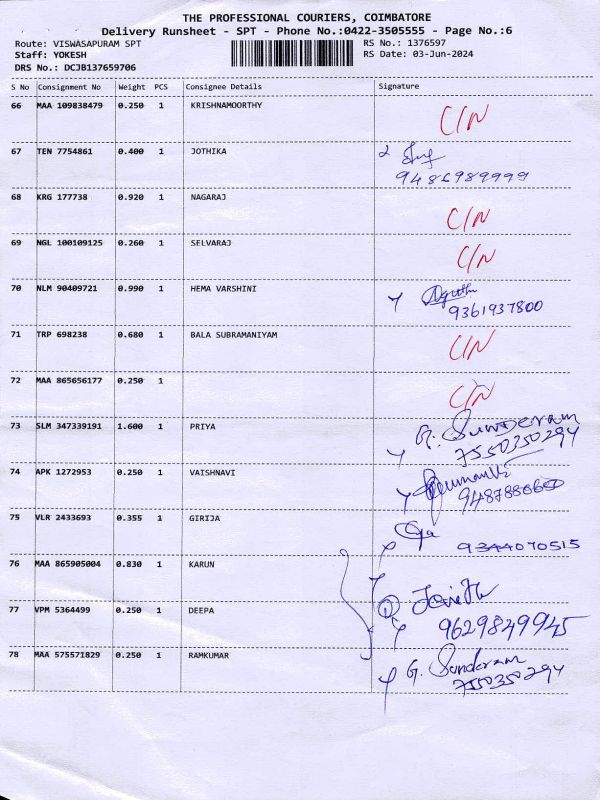 THE PROFESSIONAL COURIERS, COIMBATORE
Delivery Runsheet - SPT - Phone No.:0422-3505555 - Page No.:6
Route: VISWASAPURAM SPT
RS No.: 1376597
Staff: YOKESH
RS Date: 03-Jun-2024
DRS No.: DCJB137659706
S No Consignment No Weight PCS Consignee Details Signature
66 MAA 109838479 0.250 1 KRISHNAMOORTHY C/N
67 TEN 7754861 0.400 1 JOTHIKA
9486989999
68 KRG 177738 0.920 1 NAGARAJ C/N
69 NGL 100109125 0.260 1 SELVARAJ C/N
70 NLM 90409721 0.990 1 HEMA VARSHINI
9361937800
71 TRP 698238 0.680 1 BALA SUBRAMANIYAM C/N
72 MAA 865656177 0.250 1 C/N
73 SLM 347339191 1.600 1 PRIYA G. Sunderam
7550350294
74 APK 1272953 0.250 1 VAISHNAVI
75 VLR 2433693 0.355 1 GIRIJA
9344070515
76 MAA 865905004 0.830 1 KARUN
77 VPM 5364499 0.250 1 DEEPA
9629849945
78 MAA 575571829 0.250 1 RAMKUMAR G. Sunderam
7550350294